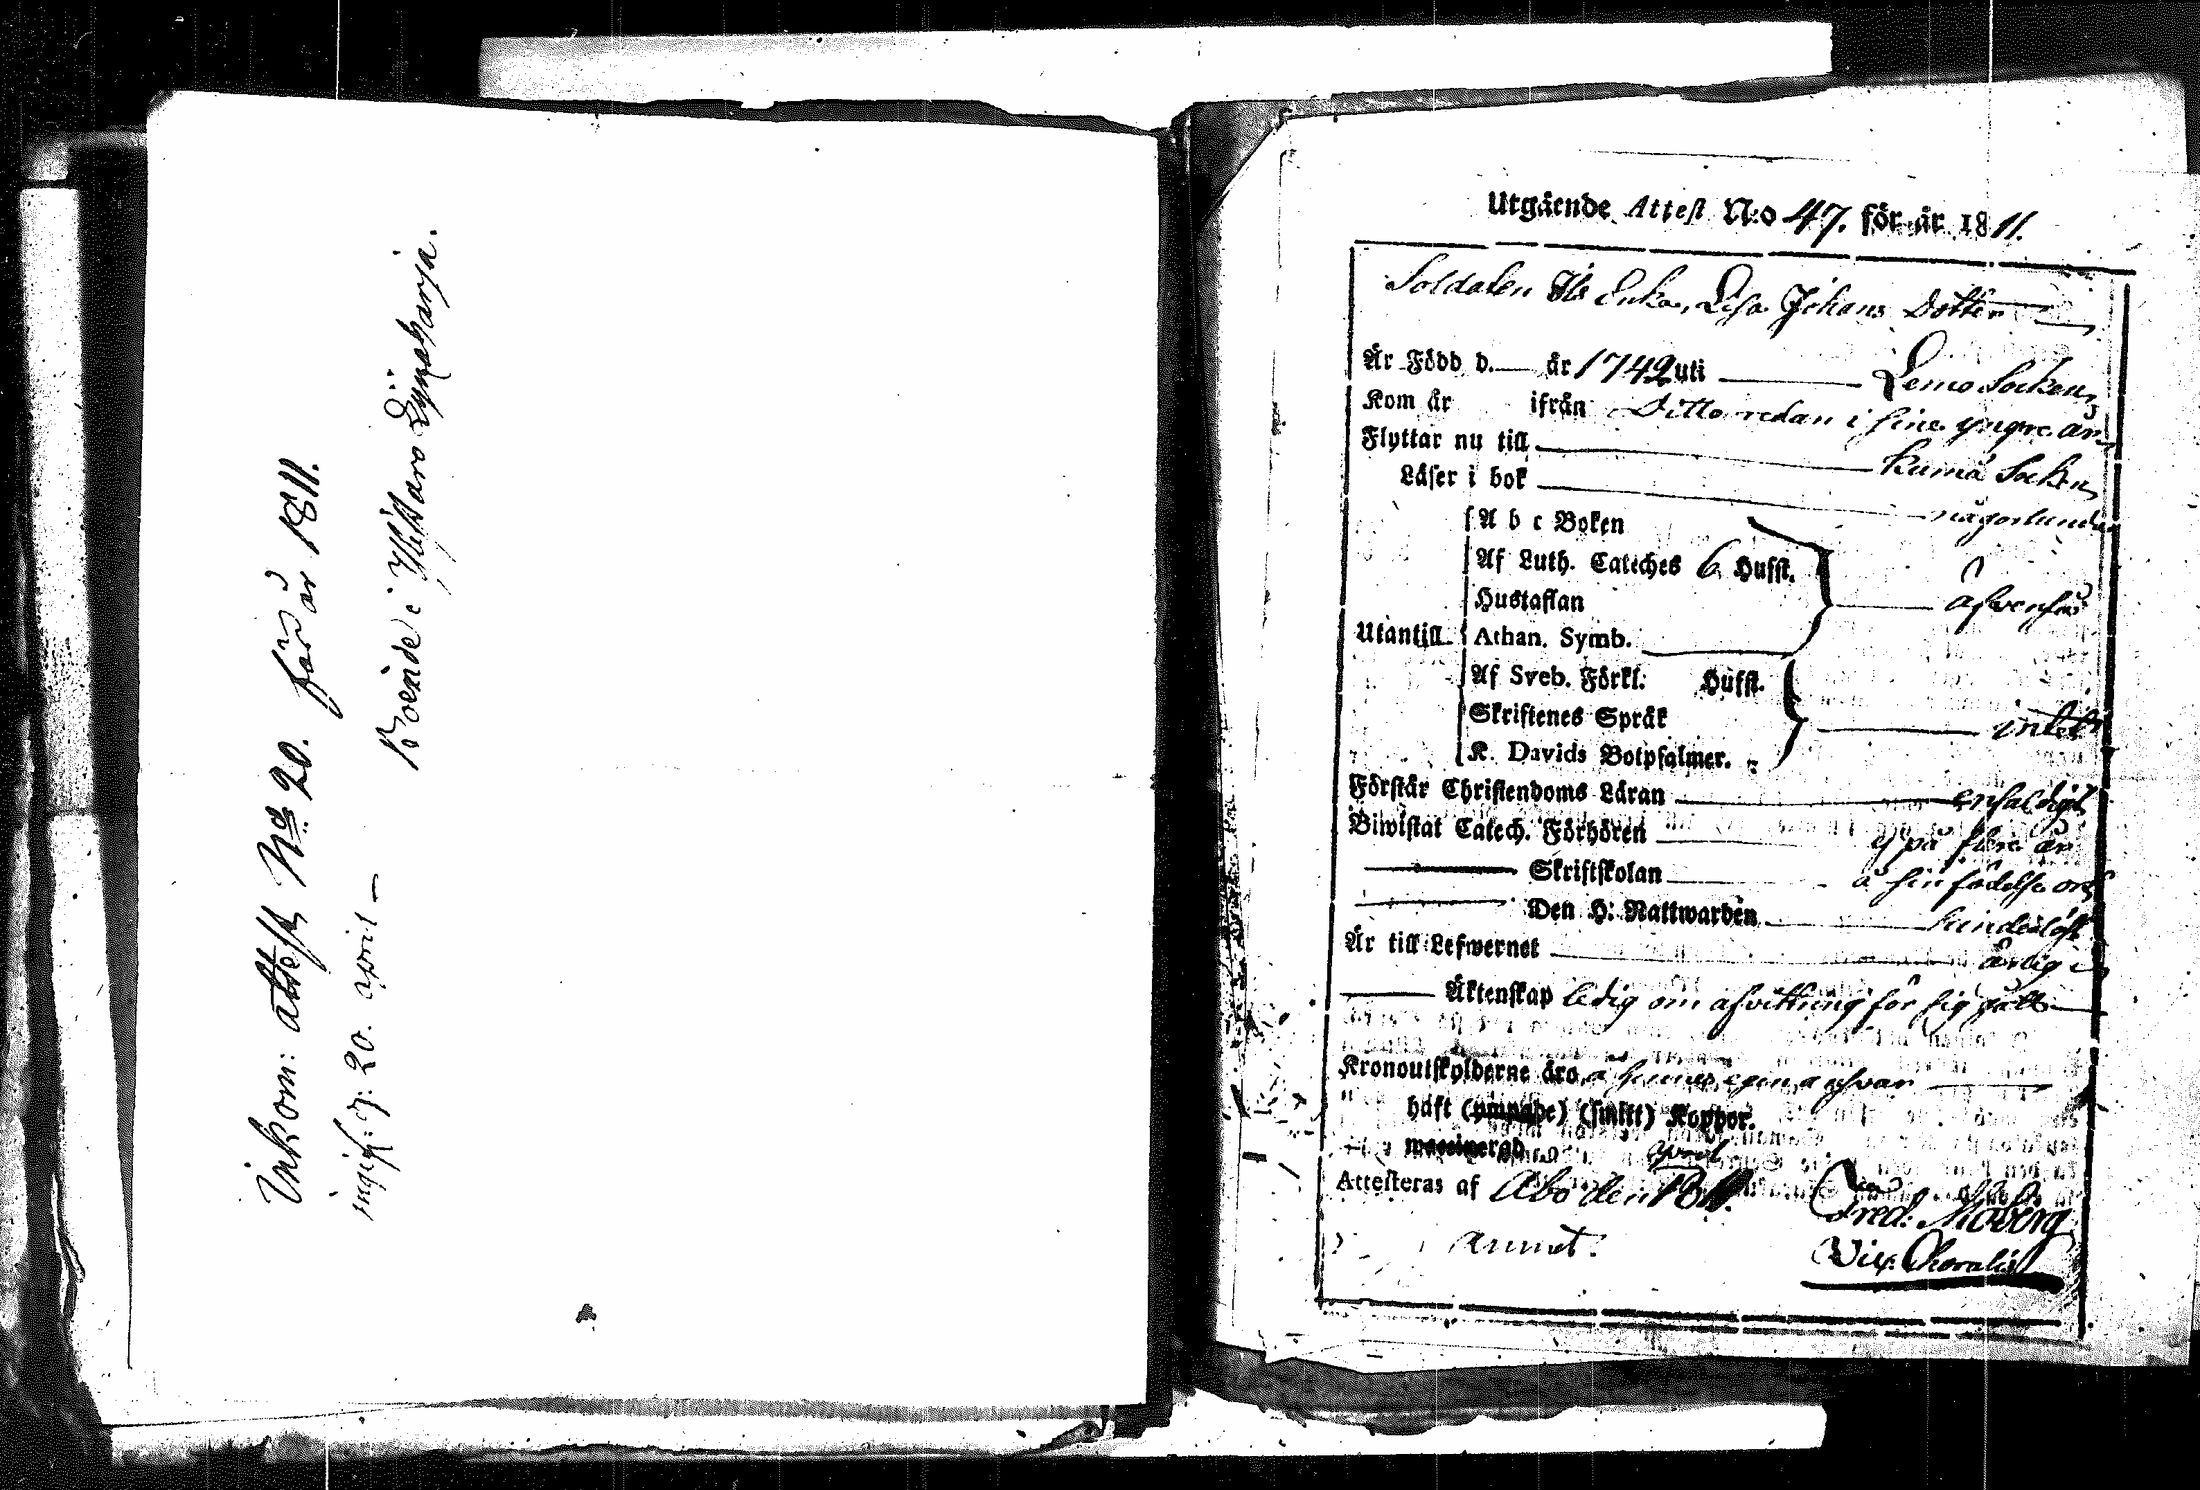 Inkom: attest No 20. för år 1811.
ingif: d: 20. april
Boende i
Utgående Attest N:o 47. för år 1811.
Soldaten Ils Enka, Lisa Johans Dotter
Är Född d. år 1742 uti Lemo Socken,
Kom år ifrån Ditto redan i sine yngre år
Flyttar nu till Socken,
Läser i bok någorlunda
A b c Boken
Af Luth. Cateches 6 Hufst.
Hustaflan åfvenså
Utantill Athan. Symb.
Af Sveb. Förkl. Hufst.
Skriftenes Språk intet
K. Davids Botpsalmer.
Förstår Christendoms Läran enfaldigt
Biwistat Catech. Förhören ej på flere år
Skriftskolan å sin födelse ort
Den H: Nattwarden hinderlöst
Är till Lefwernet ärlig
Äktenskap ledig om afvittring för sig gått
Kronoutskylderne äro å hennes egen ansvar
haft (ympade) (smitt) Koppor.
waccinerad
april
Attesteras af Åbo den 1811.
Fred: Moberg
Vic: Choralis